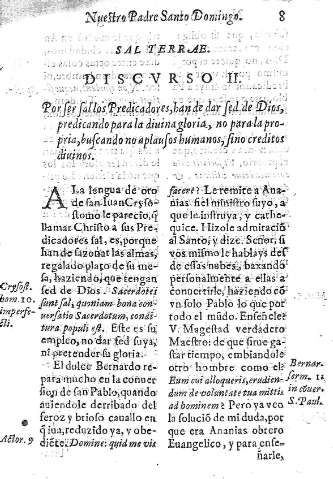 Nuestro Padre Santo Domingo. 8
SAL TERRAE.
DISCVRSO II.
Por ser sal los Predicadores, han de dar sed de Dios,
predicando para la diuina gloria, no para la pro-
pria, buscando no aplausos humanos, sino creditos
diuinos.
A La lengua de oro
de san Iuan Cryso-
stomo le parecio, q̃
llamas Christo a sus Pre-
dicadores sal, es, porque
han de sazonar las almas,
regalado plato de su me-
sa, haziendo, que tengan
sed de Dios. Sacerdotes
sunt sal, quoniam bona con-
uersatio Sacerdotum, condi-
tura populi est. Este es su
empleo, no dar sed suya,
ni pretender su gloria.
El dulce Bernardo re-
para mucho en la conuer-
sion de san Pablo, quando
auiendole derribado del
feroz y brioso cauallo en
q̃ iua, reduzido ya, y obe-
diẽte. Domine: quid me vis
Crysost.
hom. 10.
imperfe-
cti.
Actor. 9
facere? Le remite a Ana-
nias fiel ministro suyo, a
que le instruya, y cathe-
quice. Hizole admiració
al Santo, y dize. Señor, si
vos mismo le hablays des
de essas nubes, baxando
personalmente a ellas a
conuertirle, haziendo có
vn solo Pablo lo que por
todo el mũdo. Enseñcle
V. Magestad verdadero
Maestro: de que sirue gas-
tar tiempo, embiandole
otro hombre como el?
Eum cui alloqueris, erudien-
dum de voluntate tua mittis
ad hominem? Pero ya veo
la solució de mi duda, por
que era Ananias obrero
Euangelico, y para ense-
ñarle,
Bernar.
serm. 1.
in cõuer.
S. Paul.